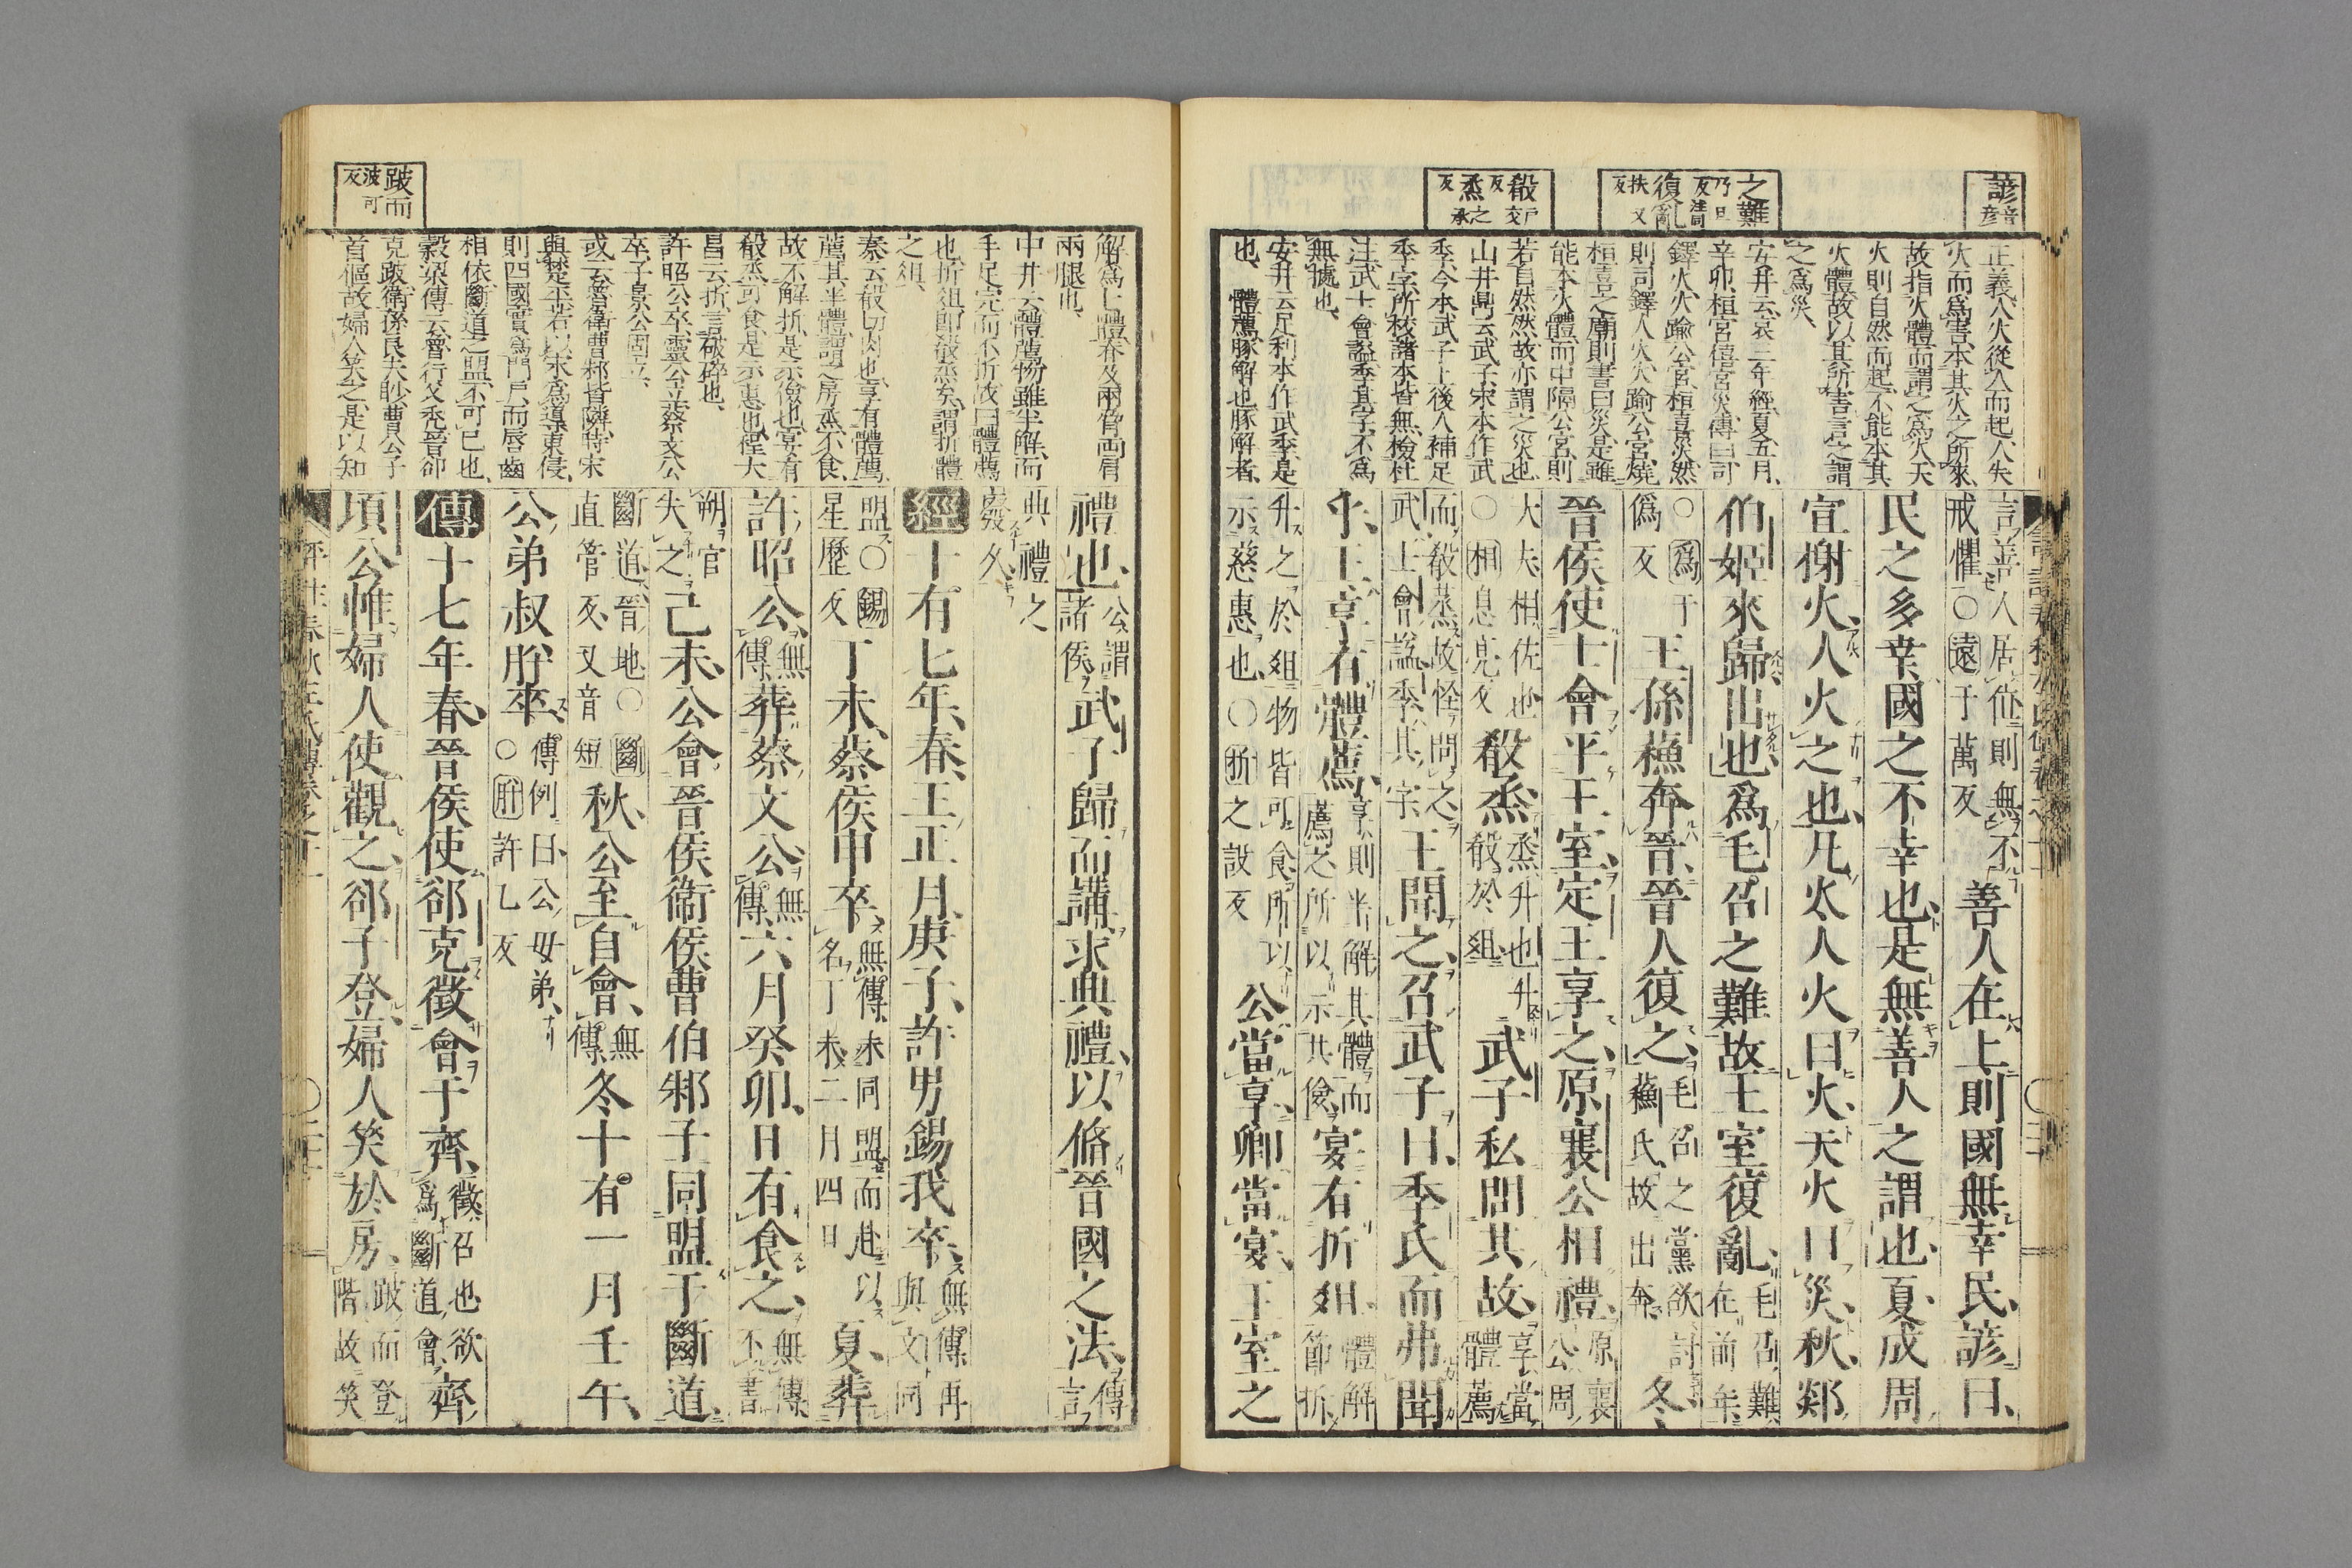 諺 音彥
之難 乃旦反注同
復亂 扶又反
殽 戶交反
烝 之承反
正義人火從人而起人失
火而爲害本其火之所來
故指火體而謂之爲火天
火則自然而起不能本其
火體故以其所害言之謂
之爲災
安井云哀三年經夏五月
辛卯桓宮僖宮災傳曰司
鐸火火踰公宮桓喜災然
則司鐸人火火踰公宮燒
桓喜之廟則書曰災是雖
能本火體而中隔公宮則
若自然然故亦謂之災也
山井鼎云武子宋本作武
季今本武子上後人補足
季字所校諸本皆無檢杜
注武士會謚季其字不爲
無據也
安井云足利本作武季是
也 體薦豚解也豚解者
言善人居位則無不
戒懼○遠于萬反
善人在上則國無幸民諺曰
民之多幸國之不幸也是無善人之謂也夏成周
宣榭火人火之也凡火人火曰火天火曰災秋郯
伯姬來歸出也爲毛召之難故王室復亂毛召難在前年
○爲于僞反
王孫蘇奔晉晉人復之毛召之黨欲討蘇氏故出奔
冬
晉侯使士會平王室定王享之原襄公相禮原襄公周
大夫相佐也○相息亮反
殽烝烝升也升殽於俎
武子私問其故享當體薦
而殽烝故怪問之武士會謚季其字
王聞之召武子曰季氏而弗聞
乎王享有體薦享則半解其體而薦之所以示其儉
宴有折俎體解節折
升之於俎物皆可食所以示慈惠也○折之設反
公當享卿當宴王室之
跛而 波可反
解爲七體脊及兩脅兩肩
兩腿也
中井云體薦物雖半解而
手足完而不折故曰體薦
也折俎卽殽烝矣謂折體
之俎
秦云殽切肉也享有體薦
薦其半體謂之房烝不食
故不解折是示儉也宴有
殽烝可食是示惠也程大
昌云折言破碎也
許昭公卒靈公立蔡文公
卒子景公固立
或云魯衛曹邾皆隣特宋
與楚平若以宋爲導東侵
則四國實爲門戶而脣齒
相依斷道之盟不可已也
穀梁傳云魯行父禿晉郤
克跛衛孫良夫眇曹公子
首傴故婦人笑之是以知
禮也公謂諸侯
武子歸而講求典禮以脩晉國之法傳言
典禮之廢久
經 十有七年春王正月庚子許男錫我卒無傳再與文同
盟○錫星歷反
丁未蔡侯申卒無傳未同盟而赴以名丁未二月四日
夏葬
許昭公無傳葬蔡文公無傳六月癸卯日有食之無傳不書
朔官失之
己未公會晉侯衛侯曹伯邾子同盟于斷道
斷道晉地○斷直管反又音短
秋公至自會無傳冬十有一月壬午
公弟叔肸卒傳例曰公母弟○肸許乙反
傳 十七年春晉侯使郤克徵會于齊徵召也欲爲斷道會
齊
頃公帷婦人使觀之郤子登婦人笑於房跛而登階故笑